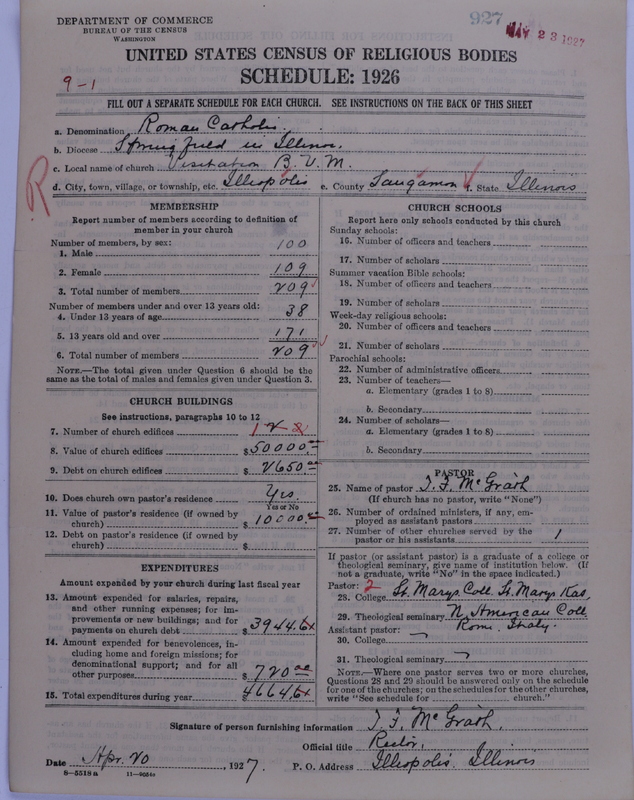 DEPARTMENT OF COMMERCE
BUREAU OF THE CENSUS
WASHINGTON
927
MAY 23 1927
UNITED STATES CENSUS OF RELIGIOUS BODIES
SCHEDULE: 1926
9-1
FILL OUT A SEPARATE SCHEDULE FOR EACH CHURCH. SEE INSTRUCTIONS ON THE BACK OF THIS SHEET
a. Denomination Roman Catholic.
b. Diocese Springfield in Illinois.
c. Local name of church Visitation B.V.M.
R
d. City, town, village, or township, etc. Illiopolis e. County Sangamon f. State Illinois
MEMBERSHIP
Report number of members according to definition of member in your church
Number of members, by sex:
1. Male 100
2. Female 109
3. Total number of members 209
Number of members under and over 13 years old:
4. Under 13 years of age 38
5. 13 years old and over 171
6. Total number of members 209
NOTE.—The total given under Question 6 should be
same as the total of males and females given under Question 3.
CHURCH BUILDINGS
See instructions, paragraphs 10 to 12
7. Number of church edifices 1 2
8. Value of church edifices $50000.00
9. Debt on church edifices $2650.00
10. Does church own pastor's residence Yes.
Yes or No
11. Value of pastor's residence (if owned by
church) $10000.00
12. Debt on pastor's residence (if owned by
church) $
EXPENDITURES
Amount expended by your church during last fiscal year
13. Amount expended for salaries, repairs,
and other running expenses; for im-
provements or new buildings; and for
payments on church debt $3944.6
14. Amount expended for benevolences, in-
cluding home and foreign missions; for
denominational support; and for all
other purposes $720.00
15. Total expenditures during year $4664.6
CHURCH SCHOOLS
Report here only schools conducted by this church
Sunday schools:
16. Number of officers and teachers
17. Number of scholars
Summer vacation Bible schools:
18. Number of officers and teachers
19. Number of scholars
Week-day religious schools:
20. Number of officers and teachers
21. Number of scholars
Parochial schools:
22. Number of administrative officers
23. Number of teachers—
a. Elementary (grades 1 to 8)
b. Secondary
24. Number of scholars—
a. Elementary (grades 1 to 8)
b. Secondary
PASTOR
25. Name of pastor T. F. McGrath
(If church has no pastor, write "None")
26. Number of ordained ministers, if any, em-
ployed as assistant pastors
27. Number of other churches served by the
pastor or his assistants 1
If pastor (or assistant pastor) is a graduate of a college or
theological seminary, give name of institution below. (If
not a graduate, write "No" in the space indicated.)
Pastor: 2
28. College St. Marys Coll. St. Marys Kas.
29. Theological seminary N. American Coll.
Rome. Italy.
Assistant pastor:
30. College
31. Theological seminary
NOTE.—Where one pastor serves two or more churches,
Questions 28 and 29 should be answered only on the schedule
for one of the churches; on the schedules for the other churches,
write "See schedule for church."
Signature of person furnishing information T. F. McGrath,
Official title Rector,
Date Apr. 20, 1927. P. O. Address Illiopolis. Illinois
8-5518a